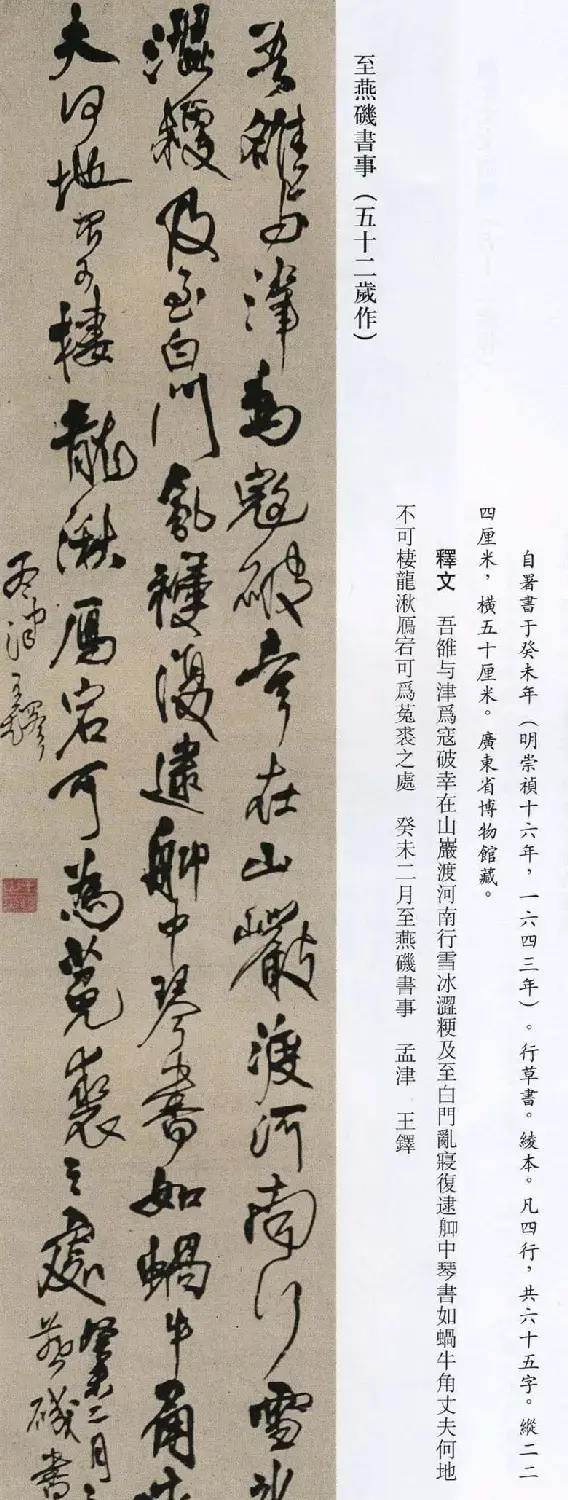 至燕磯書事（五十二歲作）
自署書于癸未年（明崇禎十六年，一六四三年）。行草書。綾本。凡四行，共六十五字。縱二二
四厘米，橫五十厘米。廣東省博物館藏。
釋文　吾雒与津爲寇破幸在山巖渡河南行雪冰澀粳及至白門亂寢復逮舺中琴書如蝸牛角丈夫何地
不可棲龍湫鴈宕可爲菟裘之處　癸未二月至燕磯書事　孟津　王鐸
吾雒与津為寇破幸在山巖渡河南行雪
澀粳及至白門亂寢復逮舺中琴書如蝸牛角
夫何地不可棲龍湫鴈宕可為菟裘之處
癸未二月
燕磯書
孟津王鐸